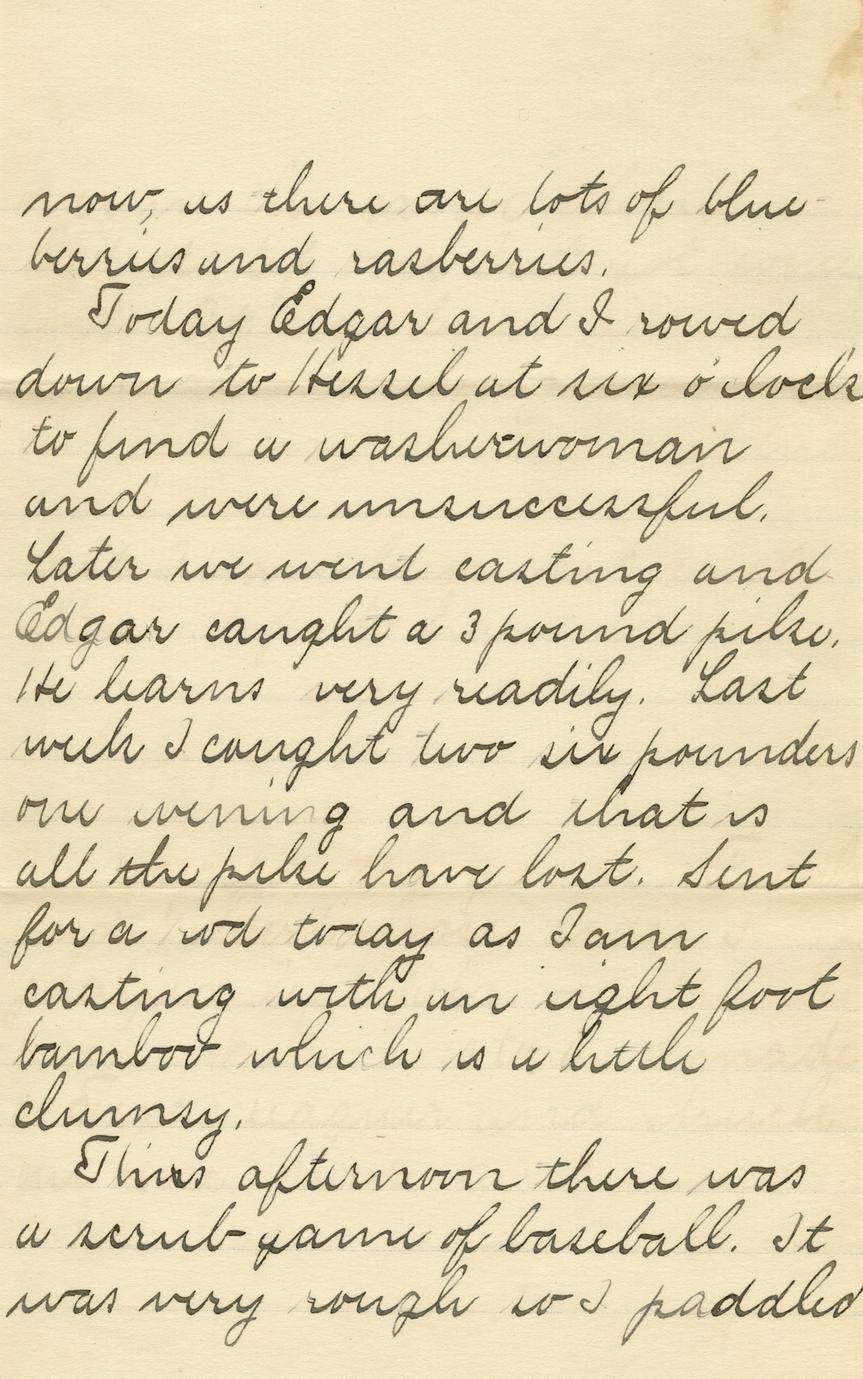 now, as there are lots of blue-
berries and rasberries.
Today Edgar and I rowed
down to Hessel at six o'clock
to find a washerwoman
and were unsuccessful.
Later we went casting and
Edgar caught a 3 pound pike.
He learns very readily. Last
week I caught two six pounders
one evening and that is
all the pike have lost. Sent
for a rod today as I am
casting with an eight foot
bamboo which is a little
clumsy.
This afternoon there was
a scrub game of baseball. It
was very rough so I paddled